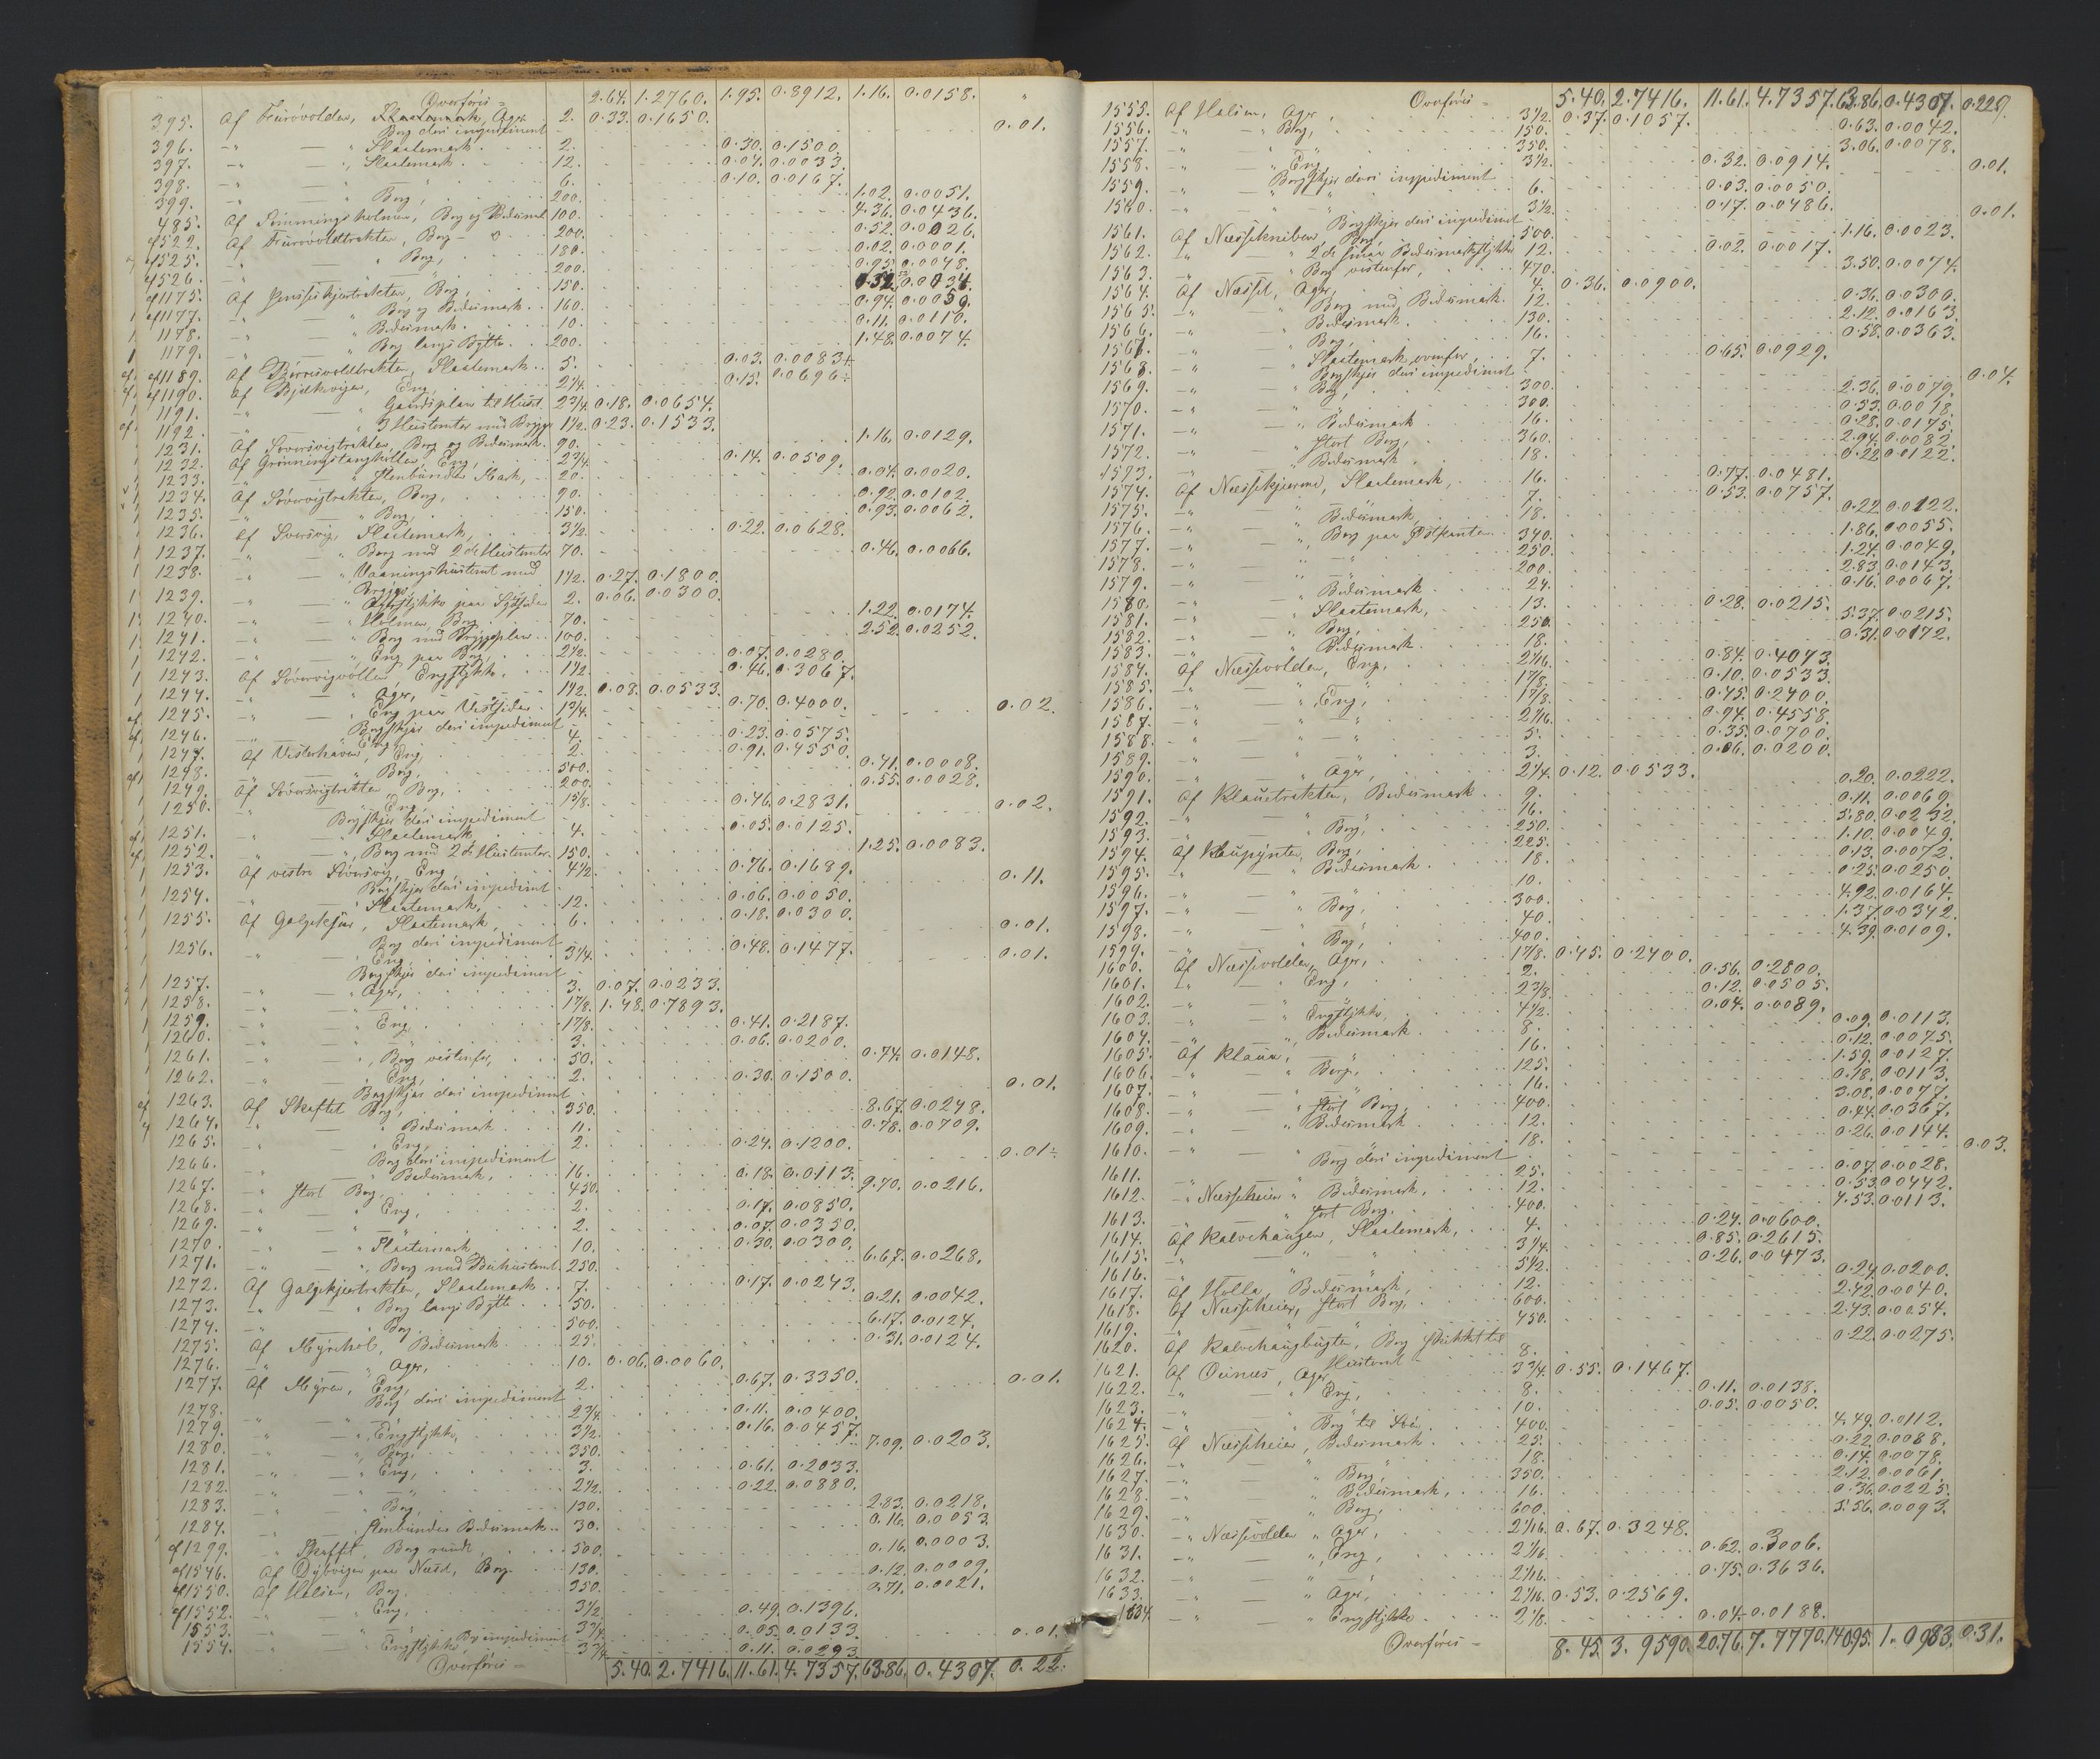 Overføris = 2.64. 1.2760. 1.95. 0.3912. 1.16. 0.0158. "
395. Af Furuvolden, Slaatemark, Ager 2. 0.33. 0.1650.
Berg deri impediment 0.01.
396. -"- — " Slaatemark 2. 0.30. 0.1500.
397. -"- — " Slaatemark 12. 0.04. 0.0033.
398. -"- " 6. 0.10. 0.0167.
399. -"- " Berg, 200. 1.02. 0.0051.
485. Af Simmingsholmen, Berg og Bedesmark 100. 4.36. 0.0436.
af 522. Af Furuvoldtrakten, Berg 200. 0.52. 0.0026.
af 525. -"- " Berg, 180. 0.02. 0.0001.
af 526. -"- 200. 0.95. 0.0048.
af 1175. Berg, 150.
af 1177. -"- " Berg og Bedesmark 160. 0.94. 0.0059.
1178. -"- " Bedesmark 10. 0.11. 0.0110.
1179. -"- " Berg langs Bytte 200. 1.48. 0.0074.
af 1189. Slaatemark 5. 0.03. 0.0083
af 1190. Af Bjelkevigen, Eng, 2¼. 0.15. 0.0696
1191. -"- — " Gaardsplan til Huset 2¾. 0.18. 0.0654.
1192. -"- — " 3 Hustomter med Brygge 1½. 0.23. 0.1533.
1231. Af Søversvigtrakten, Berg og Bedesmark. 90. 1.16. 0.0129.
1232. Af Grønningstangkollen, Eng, 2¾. 0.14. 0.0509.
1233. -"- — " Stenbunden Mark, 20. 0.04. 0.0020.
1234. Af Søversvigtrakten, Berg, 90. 0.92. 0.0102.
1235. -"- — " Berg, 150. 0.93. 0.0062.
1236. Af Sversvig, Slaatemark, 3½. 0.22. 0.0628.
1237. -"- " Berg med 2 de Hustomter 70. 0.46. 0.0066.
1238. -"- — " Vaaningshustomt med
Brygge, 1½. 0.27. 0.1800.
1239. -"- — " Agerstykke paa Sydsiden 2. 0.06. 0.0300.
1240. -"- — " Holmen, Berg 70. 1.22. 0.0174.
1241. -"- — " Berg med Bryggeplan 100. 2.52. 0.0252.
1242. -"- — " Eng paa Berg, 2½. 0.07. 0.0280.
1243. Af Søversvigvollen, Engstykke, 1½. 0.46. 0.3067.
1244. -"- — " Ager, 1½. 0.08. 0.0533.
1245. -"- — " Eng paa Vestsiden 1¾. 0.70. 0.4000.
Bergskjær deri impediment 0.02.
1246. -"- — " Eng 4. 0.23. 0.0575.
1247. Af Vesterhaven, Eng, 2. 0.91. 0.4550.
1248. -"- — " Berg, 500. 0.41. 0.0008.
1249. Af Søversvigtrakten, Berg, 200. 0.55. 0.0028.
1250. -"- " Eng, 1⅝. 0.46. 0.2831.
Bergskjær deri impediment 0.02.
1251. -"- — " Slaatemark 4. 0.05. 0.0125.
1252. " — " Berg med 2 de Hustomter. 150. 1.25. 0.0083.
1253. Af vestre Søversvig, Eng 4½. 0.76. 0.1689.
Bergskjær deri impediment 0.11.
1254. -"- — " Slaatemark, 12. 0.06. 0.0050.
1255. Af Galgekjær, Slaatemark, 6. 0.18. 0.0300.
Berg deri impediment 0.01.
1256. -"- — " Eng, 3¼. 0.48. 0.1477.
Bergskjær deri impediment 0.01.
1257. -"- — " Ager, 3. 0.07. 0.0233.
1258. -"- — " — " 1⅞. 1.48. 0.7893.
1259. -"- " Eng 1⅞. 0.41. 0.2187.
1260. -"- " — " 3. 0.06. 0.0200.
1261. -"- — " Berg vestenfor, 50. 0.74. 0.0148.
1262. -"- — " Eng, 2. 0.30. 0.1500.
Bergskjær deri impediment 0.01.
1263. Af Skaftet Berg, 350. 8.67. 0.0248.
1264. -"- — " Bedesmark 11. 0.78. 0.0709.
1265. -"- — " Eng, 2. 0.24. 0.1200.
Berg deri impediment 0.01
1266. -"- — " Bedesmark, 16. 0.18. 0.0113.
1267. -"- stort Berg 450. 9.70. 0.0216.
1268. -"- — " Eng, 2. 0.17. 0.0850.
1269. -"- — " " 2. 0.07. 0.0350.
1270. -"- — " Slaatemark 10. 0.30. 0.0300.
1271. -"- — " Berg med Buhustomt 250. 6.67. 0.0268.
1272. Af Galgekjærtrakten, Slaatemark 7. 0.17. 0.0243.
1273. -"- — " Berg langs Bytte 50. 0.21. 0.0042.
1274. -"- " Berg 500. 6.17. 0.0124.
1275. Af Myrehol, Bedesmark 25. 0.31. 0.0124.
1276. -"- — " Ager, 10. 0.06. 0.0060.
1277. Af Myren, Eng, 2. 0.67. 0.3350.
Berg deri impediment 0.01.
1278. -"- — " — " 2¾. 0.11. 0.0400.
1279. -"- — " Engstykke, 3½. 0.16. 0.0457.
1280. -"- — " Berg. 350. 7.09. 0.0203.
1281. -"- — " Eng, 3. 0.61. 0.2033.
1282. -"- — " — " 2½. 0.22. 0.0880.
1283. -"- " Berg, 130. 2.83. 0.0218.
1284. -"- " Stenbunden Bedesmark 30. 0.16. 0.0053.
af 1299. " Skaftet, Berg rundt, 500. 0.16. 0.0003.
af 1546. Af Dybvigen paa Næsd, Berg. 130. 0.12. 0.0009.
af 1550. Af Halsen, Berg. 350. 0.71. 0.0021.
af 1552. -"- — " Eng, 3½. 0.49. 0.1396.
1553. -"- — " 3¾. 0.05. 0.0133.
1554. -"- — " Engstykke, Berg impediment 3¾. 0.11. 0.0293. 0.01.
Overføris = 5.40. 2.7416. 11.61. 4.7357. 63.86. 0.4307. 0.22.
Overføris = 5.40. 2.7416. 11.61. 4.7357. 63.86. 0.4307. 0.22
1555. Af Halsen, Ager, 3½. 0.37. 0.1057.
1556. -"- — " Berg, 150. 0.63. 0.0042.
1557. -"- — " " 350. 3.06. 0.0078.
1558. -"- " Eng 3½. 0.32. 0.0914.
Bergskjær deri impediment 0.01.
1559. -"- — " " 6. 0.03. 0.0050.
1560. -"- — " " 3½. 0.17. 0.0486.
Bergskjær deri impediment 0.01.
1561. Af Næssekniben, Berg, 500. 1.16. 0.0023.
1562. -"- — " 2 de smaa Bedesmarkstykker 12. 0.02. 0.0017.
1563. -"- — " Berg vestenfor, 470. 3.50. 0.0074.
1564. Af Næsset, Ager, 4. 0.36. 0.0900.
1565. -"- — " Berg med Bedesmark. 12. 0.36. 0.0300.
1566. -"- " Bedesmark. 130. 2.12. 0.0163.
1567. -"- " Berg, 16. 0.58. 0.0363.
1568. -"- " Slaatemark ovenfor, 7. 0.65. 0.0929.
Bergskjær deri impediment 0.04.
1569. -"- " Berg, 300. 2.36. 0.0079.
1570. -"- — " — " 300. 0.53. 0.0018.
1571. -"- — " Bedesmark 16. 0.28. 0.0175.
1572. -"- — " stort Berg, 360. 2.94. 0.0082.
1573. -"- " Bedesmark 18. 0.22. 0.0122.
1574. Af Næssekjærene, Slaatemark, 16. 0.77. 0.0481.
1575. -"- — " " 7. 0.53. 0.0757.
1576. -"- — " Bedesmark, 18. 0.22. 0.0122.
1577. -"- — " Berg paa Østkanten 340. 1.86. 0.0055.
1578. -"- — " — " 250. 1.24. 0.0049.
1579. -"- — " — " 200. 2.83. 0.0143.
1580. -"- — " Bedesmark 24. 0.16. 0.0067.
1581. -"- — " Slaatemark, 13. 0.28. 0.0215.
1582. -"- — " Berg, 250. 5.37. 0.0215.
1583. -"- — " Bedesmark 18. 0.31. 0.0172.
1584. Af Næssevolden, Eng, 2 1/16. 0.84. 0.4073.
1585. -"- — " — " 1⅞. 0.10. 0.0533.
1586. -"- — " Eng, 1⅞. 0.45. 0.2400.
1587. -"- — " — " 2 1/16. 0.94. 0.4558.
1588. -"- — " — " 5. 0.35. 0.0700.
1589. -"- — " — " 3. 0.06. 0.0200.
1590. -"- — " Ager, 2¼. 0.12. 0.0533.
1591. Af Klauetrakten, Bedesmark 9. 0.20. 0.0222.
1592. -"- — " — " 16. 0.11. 0.0069.
1593. -"- — " Berg, 250. 5.80. 0.0232.
1594. Af Klaupynten, Berg, 225. 1.10. 0.0049.
1595. -"- — " Bedesmark 18. 0.13. 0.0072.
1596. -"- — " 10. 0.25. 0.0250.
1597. -"- — " Berg, 300. 4.92. 0.0164.
1598. -"- — " " 40. 1.37. 0.0342.
1599. -"- " Berg, 400. 4.39. 0.0109.
1600. Af Næssevolden, Ager, 1⅞. 0.45. 0.2400.
1601. -"- — " Eng, 2. 0.56. 0.2800.
1602. -"- — " " 2⅜. 0.12. 0.0505.
1603. -"- — " Engstykke, 4½. 0.04. 0.0089.
1604. -"- — " Bedesmark 8. 0.09. 0.0113.
1605. Af Klaua, — " 16. 0.12. 0.0075.
1606. -"- — " Berg, 125. 1.59. 0.0127.
1607. -"- — " " 16. 0.18. 0.0113.
1608. -"- — " stort Berg, 400. 3.08. 0.0077.
1609. -"- — " Bedesmark 12. 0.44. 0.0367.
1610. -"- — " 18. 0.26. 0.0144.
Berg deri impediment 0.03.
1611. -"- — " 25. 0.07. 0.0028.
1612. -"- Næsseheien " Bedesmark, 12. 0.53. 0.0442.
1613. " stort Berg. 400. 4.53. 0.0113.
1614. Af Kalvehaugen, Slaatemark, 4. 0.24. 0.0600.
1615. -"- — " " 3¼. 0.85. 0.2615.
1616. -"- — " " 5½. 0.26. 0.0473.
1617. Af Holla, Bedesmark, 12. 0.24. 0.0200.
1618. Af Næsseheien, stort Berg, 600. 2.42. 0.0040.
1619. -"- — " 450. 2.43. 0.0054.
1620. Af Kalvehaugbugten, Berg skikket til
Hustomt 8. 0.22. 0.0275.
1621. Af Ournes, Ager, 3¾. 0.55. 0.1467.
1622. -"- — " Eng, 8. 0.11. 0.0138.
1623. -"- — " " 10. 0.05. 0.0050.
1624. -"- " Berg til Søen, 400. 4.49. 0.0112.
1625. Af Næsseheien, Bedesmark 25. 0.22. 0.0088.
1626. -"- — " " 18. 0.14. 0.0078.
1627. -"- " Berg, 350. 2.12. 0.0061.
1628. -"- — " Bedesmark, 16. 0.36. 0.0225.
1629. -"- — " Berg, 600. 5.56. 0.0093.
1630. -"- Næssevolden " Ager, 2 1/16. 0.67. 0.3248.
1631. -"- — " Eng, 2 1/16. 0.62. 0.3006.
1632. -"- — " — " 2 1/16. 0.75. 0.3636.
1633. -"- — " Ager, 2 1/16. 0.53. 0.2569.
1634. -"- — " Engstykke 2⅛. 0.04. 0.0188.
Overføris = 8.45. 3.9590. 20.76. 7.7770. 140.95. 1.0983. 0.31.